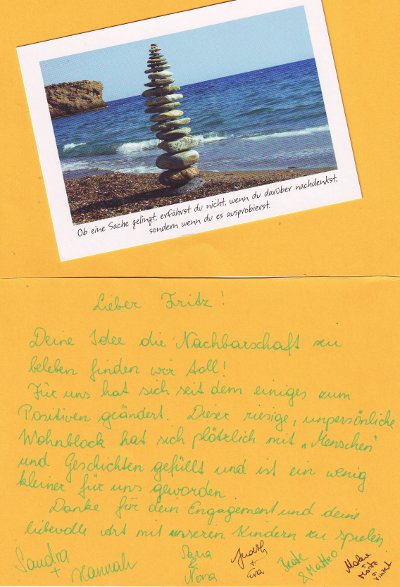 Ob eine Sache gelingt, erfährst du nicht, wenn du darüber nachdenkst,
sondern wenn du es ausprobierst.
Lieber Fritz!
Deine Idee die Nachbarschaft zu
beleben finden wir toll!
Für uns hat sich seit dem einiges zum
Positiven geändert. Dieser riesige, unpersönliche
Wohnblock hat sich plötzlich mit „Menschen"
und Geschichten gefüllt und ist ein wenig
kleiner für uns geworden.
Danke für dein Engagement und deine
liebevolle Art mit unseren Kindern zu spielen
Sandra
+ Hannah
Nora
Judith
+
& Matteo